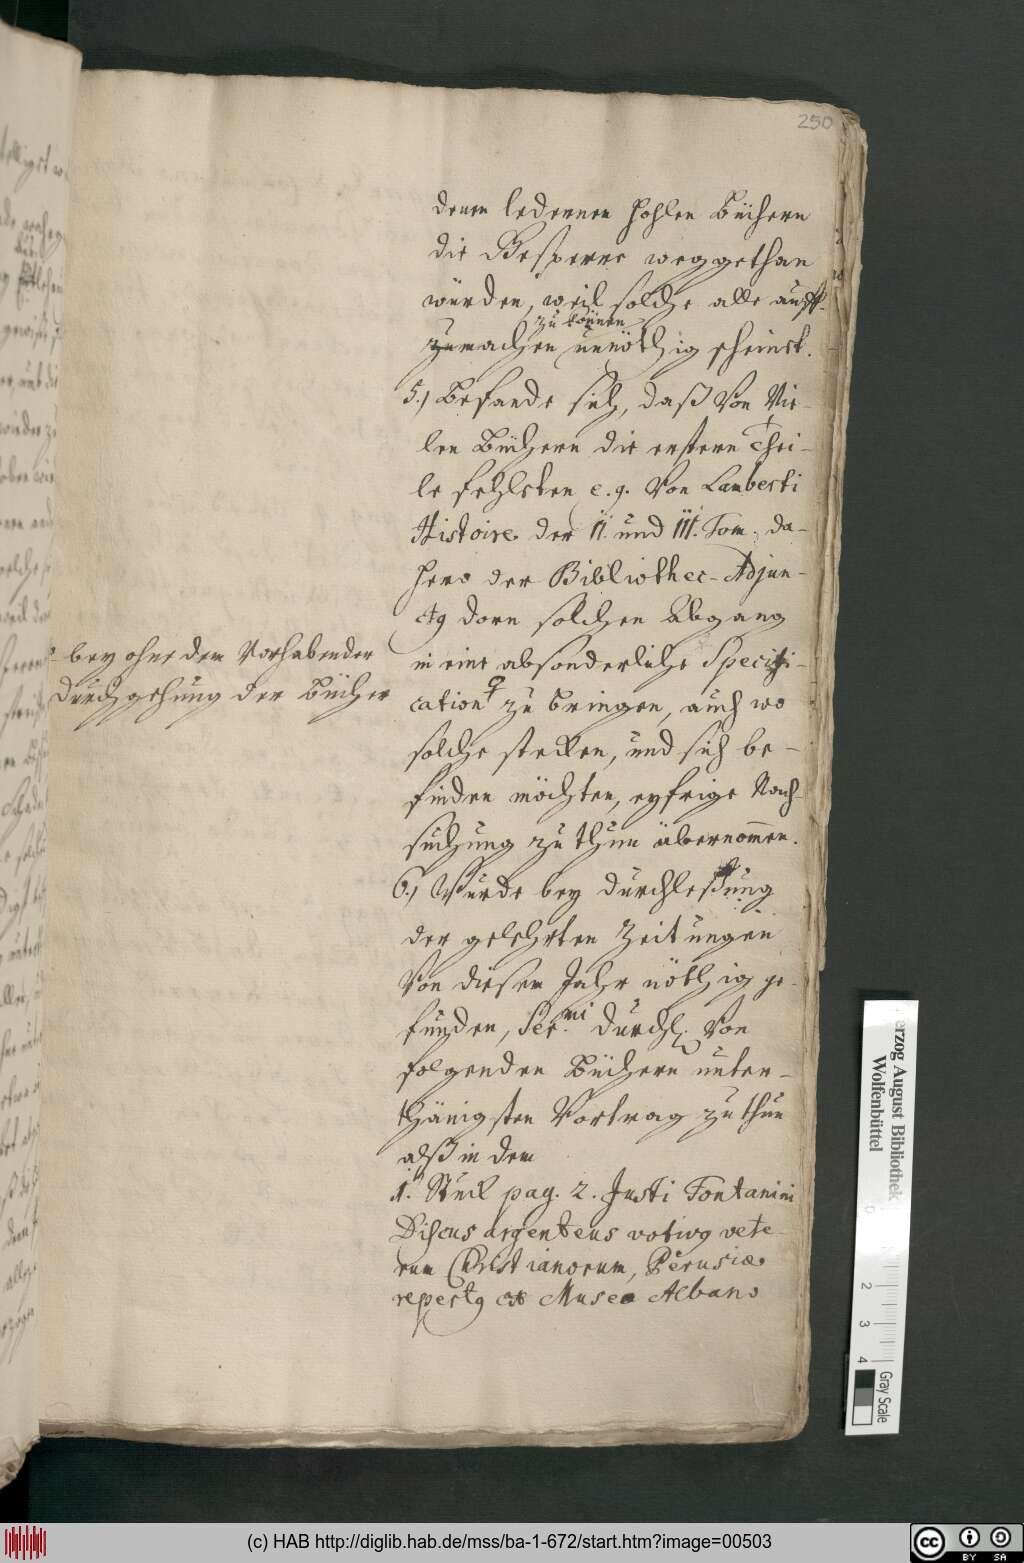 250
denen ledernen hohlen Büchern
die Gesperre weggethan
würden, weil solche alle auff-
zu können
zumachen unnöthig scheinet.
5.) Befande sich, daß von vie-
len Büchern die erstern Thei-
le fehlsten e. g. von Lamberti
Histoire der II. und III. Tom. da-
hero der Bibliothec-Adjun-
ctq dorn solchen Abgang
in eine absonderliche Specifi-
bey ohne dem vorhabender
Durchgehung der Bücher
cation zu bringen, auch wo
solche stecken, und sich be-
finden möchten, eyfrige Nach-
suchung zu thun übernommen.
6.) Würde bey Durchleßung
der gelehrten Zeitungen
von diesem Jahr nöthig ge-
funden, Ser.mi Durchl. von
folgenden Büchern unter-
thänigsten Vortrag zu thun
alß in dem
1. Stück pag. 2. Justi Fontanini
Discus argenteus votivq vete-
rum Christianorum, Perusiæ
repertq ex Museo Albano
Herzog August Bibliothek
Wolfenbüttel
0
2
3
4
Gray Scale
(c) HAB http://diglib.hab.de/mss/ba-1-672/start.htm?image=00503
cc
BY SA